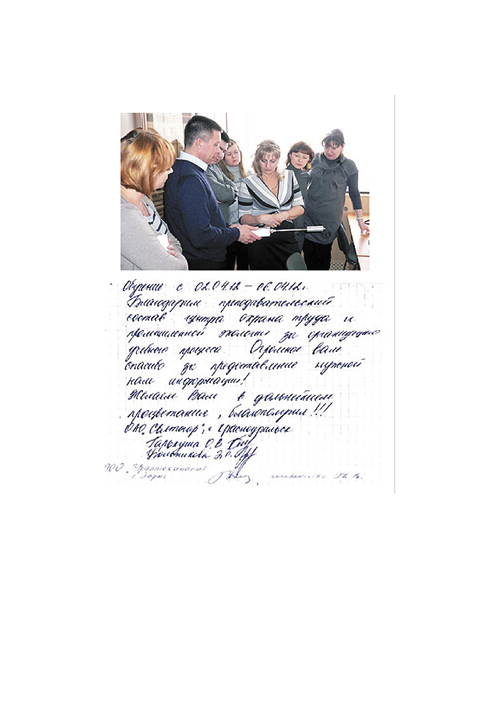 Обучение с 02.04.12 – 06.04.12г.
Благодарим преподавательский
состав центра охрана труда и
промышленной экологии за организацию
учебного процесса Огромное вам
спасибо за предоставление нужной
нам информации!
Желаем Вам в дальнейшем
процветания, благополучия!!!
ОАО „Святогор", г Красноуральск